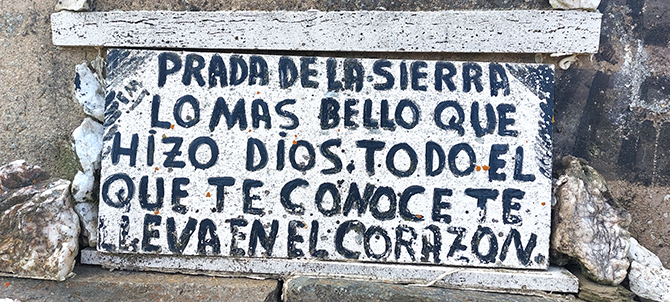 PRADA DE LA SIERRA
LO MAS BELLO QUE
HIZO DIOS. TODO EL
QUE TE CONOCE TE
LEVA EN EL CORAZON.